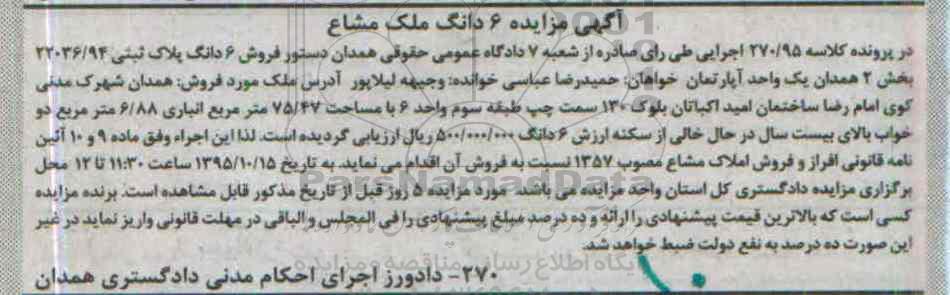 آگهی مزایده ۶ دانگ ملک مشاع
در پرونده کلاسه ۲۷۰/۹۵ اجرایی طی رای صادره از شعبه ۷ دادگاه عمومی حقوقی همدان دستور فروش ۶ دانگ پلاک ثبتی ۲۲۰۳۶/۹۴
بخش ۲ همدان یک واحد آپارتمان خواهان: حمیدرضا عباسی خوانده: وجیهه لیلاپور آدرس ملک مورد فروش: همدان شهرک مدنی
کوی امام رضا ساختمان امید اکباتان بلوک ۱۳۰ سمت چپ طبقه سوم واحد ۶ با مساحت ۷۵/۴۷ متر مربع انباری ۶/۸۸ متر مربع دو
خواب بالای بیست سال در حال خالی از سکنه ارزش ۶ دانگ ۵۰۰/۰۰۰/۰۰۰ ریال ارزیابی گردیده است. لذا این اجراء وفق ماده ۹ و ۱۰ آئین
نامه قانونی افراز و فروش املاک مشاع مصوب ۱۳۵۷ نسبت به فروش آن اقدام می نماید. به تاریخ ۱۳۹۵/۱۰/۱۵ ساعت ۱۱:۳۰ تا ۱۲ محل
برگزاری مزایده دادگستری کل استان واحد مزایده می باشد. مورد مزایده ۵ روز قبل از تاریخ مذکور قابل مشاهده است. برنده مزایده
کسی است که بالاترین قیمت پیشنهادی را ارائه و ده درصد مبلغ پیشنهادی را فی المجلس و الباقی در مهلت قانونی واریز نماید در غیر
این صورت ده درصد به نفع دولت ضبط خواهد شد.
۲۷۰- دادورز اجرای احکام مدنی دادگستری همدان
ParsNamadData
پایگاه اطلاع رسانی مناقصه و مزایده
۱۰